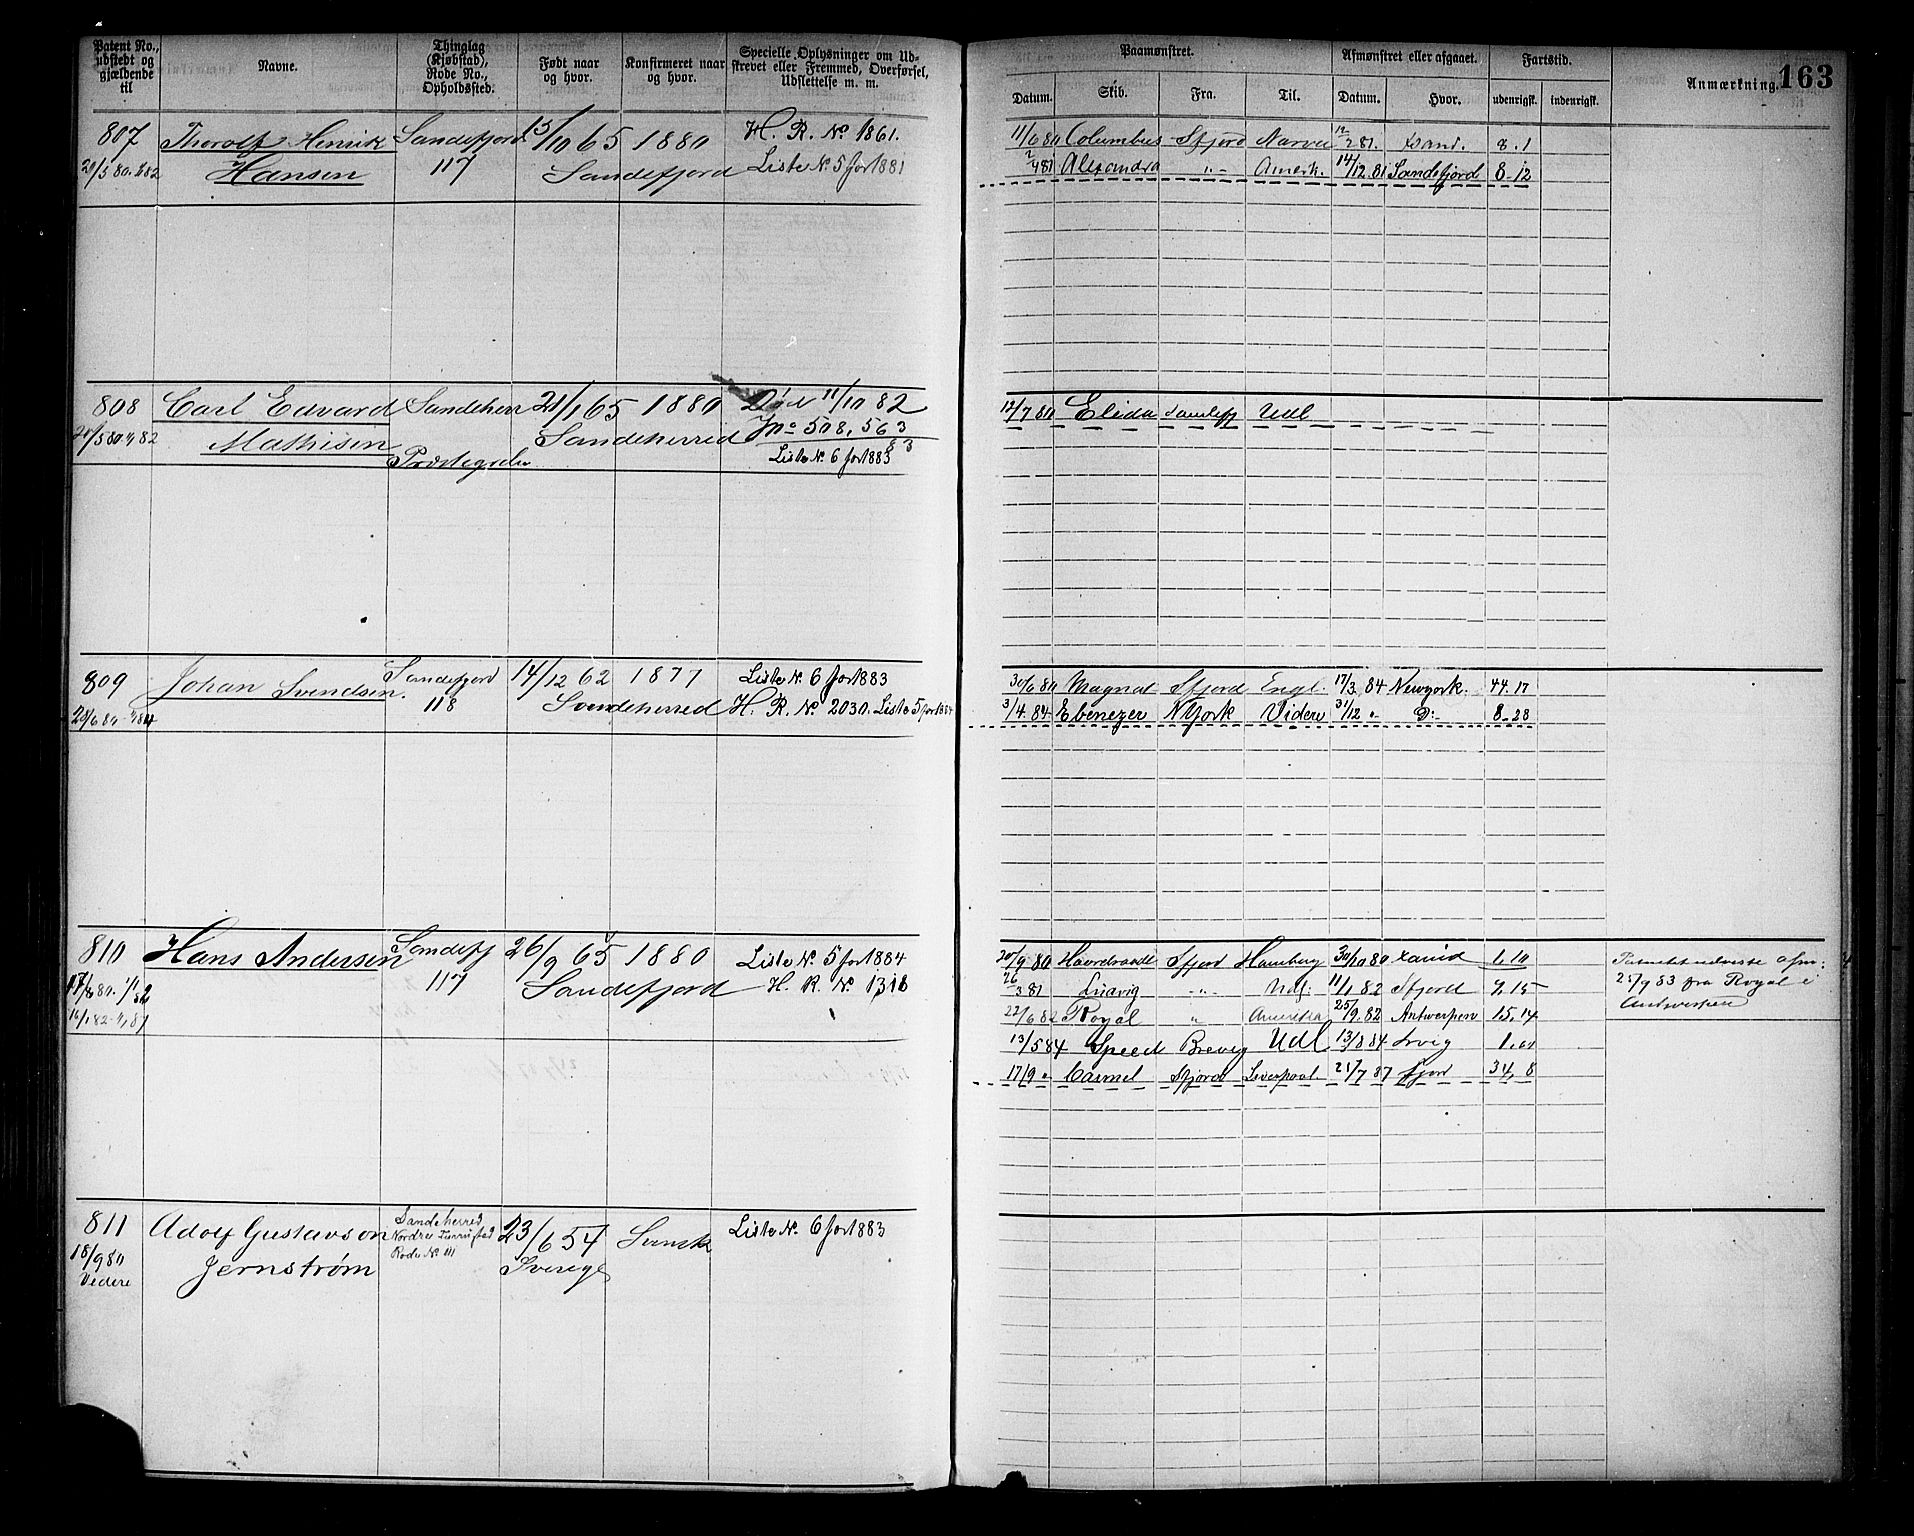 Patent No., udstedt og gjældende til
Navne.
Thinglag (Kjøbstad), Rode No., Opholdssted.
Født naar og hvor.
Konfirmeret naar og hvor.
Specielle Oplysninger om Udstrevet eller Fremmed, Overførsel, Udslettelse m. m.
Paamønstret.
Afmønstret eller afgaaet.
Fartstid.
Anmærkning.
163
Datum. Skib. Fra. Til. Datum. Hvor. udenrigsk. indenrigsk.
807 Thorolf Henrik Sandefjord 15/10 65 1880 H. R. No 1861.
Hansen 117 Sandefjord Liste No. 5 for 1881
11/6 80 Columbus Sfjord Narva 12/2 81. 8.1
2/4 81 Alexandra " - Amerk. 14/12 81 Sandefjord 8-12
808 Carl Edvard Sandeherr 21/1 65 1880 Død 11/10 82
Mathisen Sandeherred Jno 508, 563
83
Liste No. 6 for 1883
12/7 80 Elida Udl
809 Johan Svendsen. Sandefjord 14/12 62 1877 Liste No. 6 for 1883
118 Sandeherred H. R. No. 2030. Liste 5 for 1884
30/6 80 Magnat Sfjord Engl. 17/3 84 Newyork. 44.17
3/4 84 Ebenezer NYork Videre 31/12 " D: 8-28
810 Hans Andersen Sandefj 26/9 65 1880 Liste No. 5 for 1884
117 Sandefjord H. R. No. 1318
20/9 80 Sfjord Hamburg 30/10 80 1.10
26/3 81 Ludvig -"- Udl. 11/1 82 Sfjord 9.15
22/6 82 Royal " Amerika 25/9 82 Antwerpen 15.14
13/5 84 Speed Brevig Udl 13/8 84 Lrvig
17/9 " Carmel Sfjord Liverpool. 21/7 87 Sfjord 34, 8
25/9 83 fra Royal i
Antwerpen
811 Adolf Gustavson Sandeherred 23/6 54 Svensk Liste No. 6 for 1883
Rode No III
18/9 80 Jernstrøm Sverige
Videre